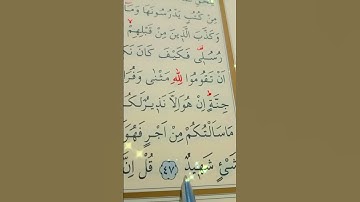 مِنْ كُتُبٍ يَدْرُسُونَهَا وَمَٓا
وَكَذَّبَ الَّذ۪ينَ مِنْ قَبْلِهِمْ
رُسُل۪ي فَكَيْفَ كَانَ
اَنْ تَقُومُوا لِلّٰهِ مَثْنٰى وَفُرَا
جِنَّةٍ اِنْ هُوَ اِلَّا نَذ۪يرٌ لَكُ
مَا سَاَلْتُكُمْ مِنْ اَجْرٍ فَهُوَ
شَيْءٍ شَه۪يدٌ ﴿٤٧﴾ قُلْ اِنَّ